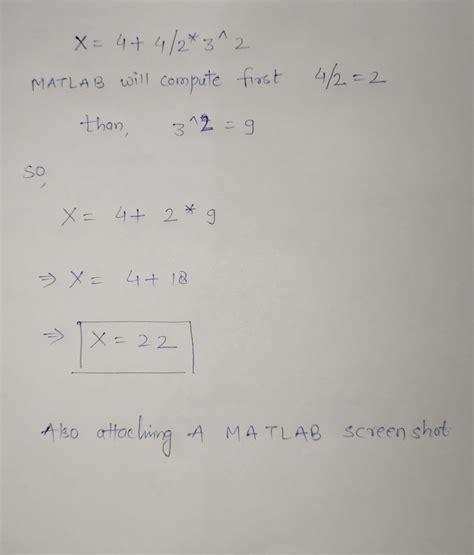 X = 4 + 4/2*3^2
MATLAB will compute first 4/2 = 2
than, 3^2 = 9
so,
X = 4 + 2 * 9
⇒ X = 4 + 18
⇒ X = 22
Also attaching A MATLAB screen shot